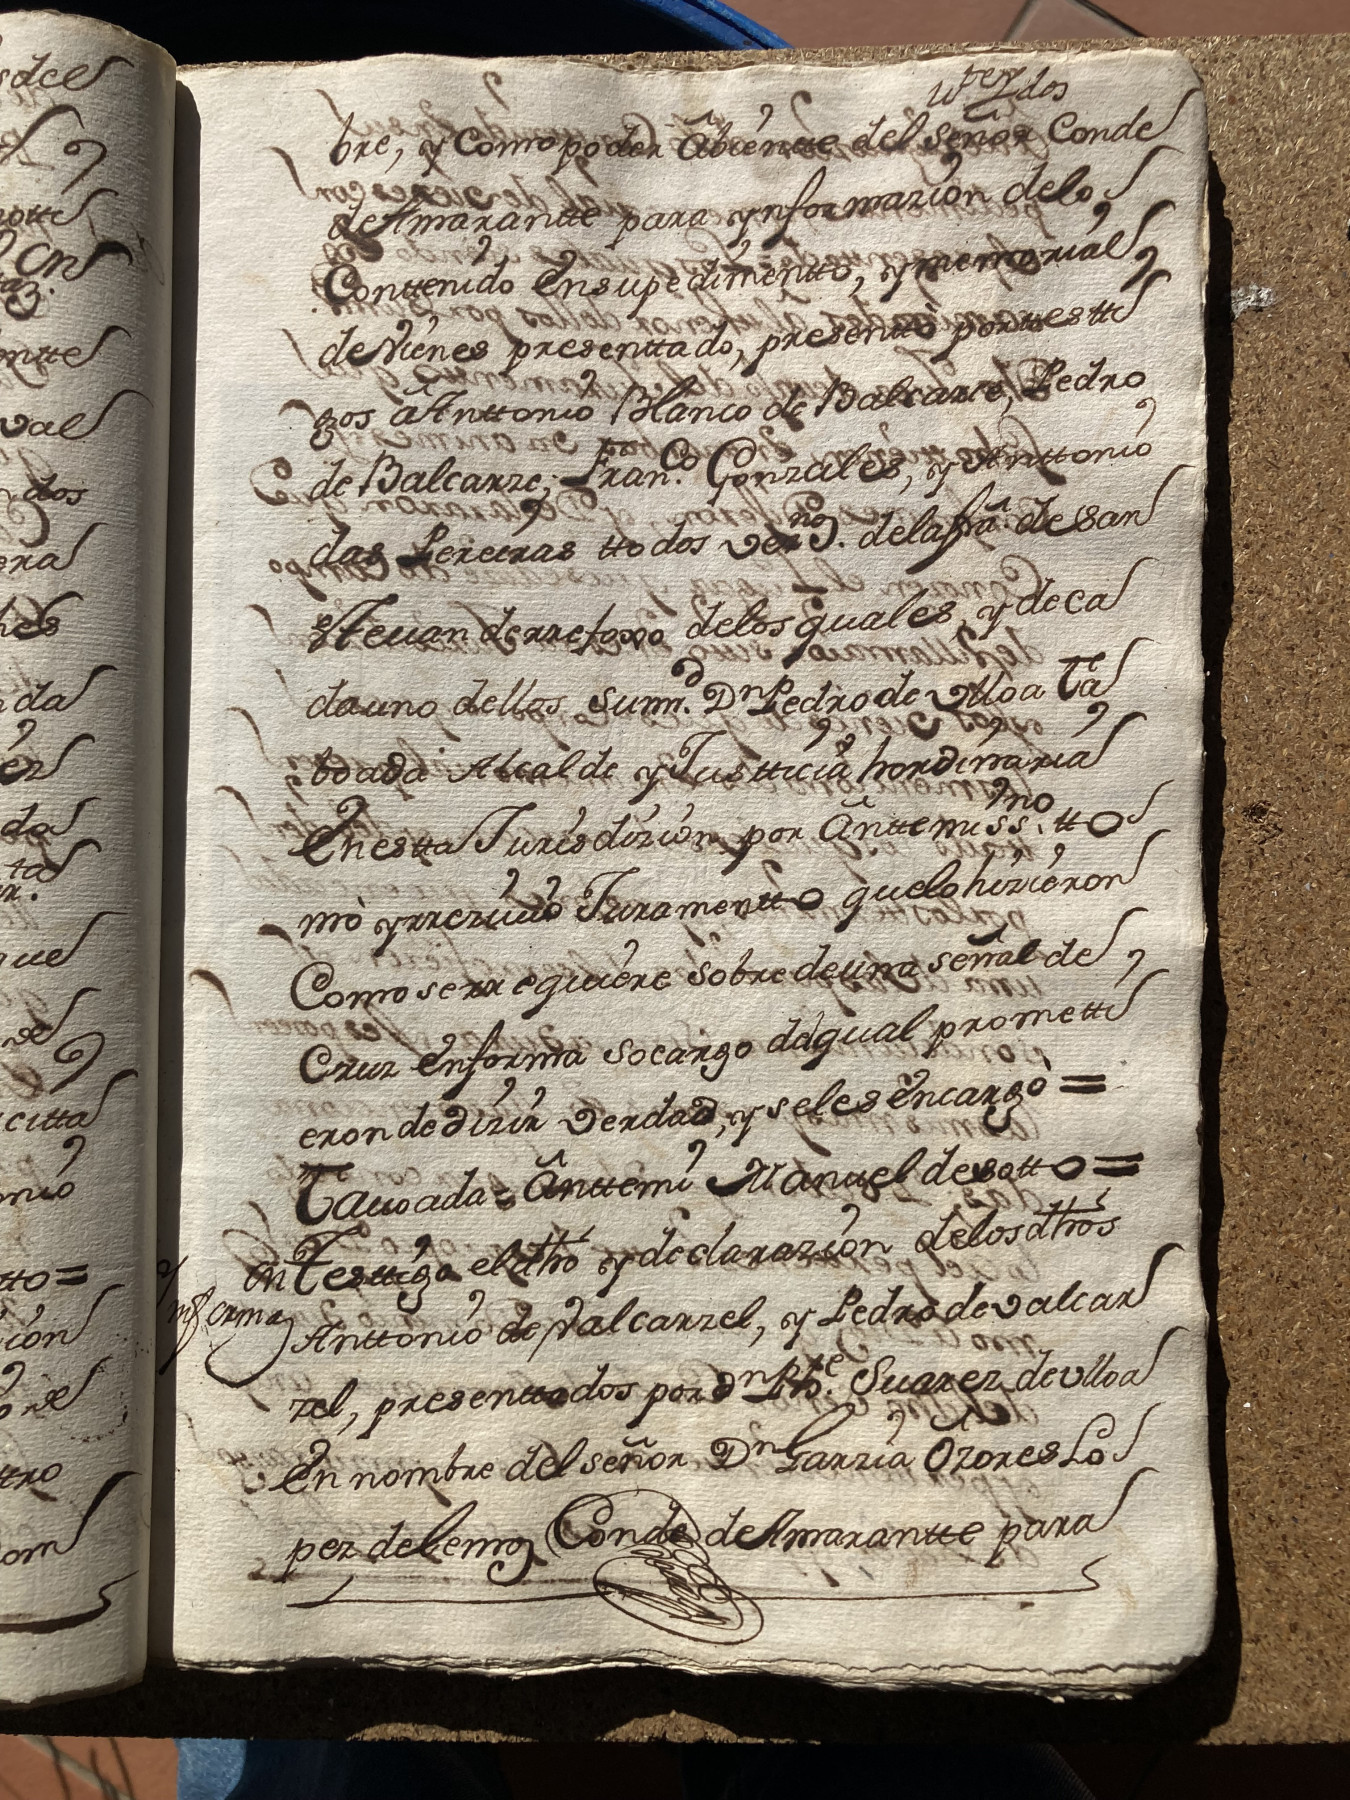 dos
bre, y Como poder âbiente del señor Conde
de Amarantte para ynformazion delo
Conttenido Ensupedimentto, y memorial
de Vienes presenttado, presentto portesti
gos â Anttonio Blanco de Balcarze, Pedro
de Balcarze, Fran.co Gonzales, y Anttonio
das Pereiras ttodos vez.nos delafra de san
esteuan derrefoxo delosquales, y deca
dauno dellos sumrd. Dn Pedro de Ulloa Ta
boada Alcalde y Justticia hordinaria
Enestta Jurisdizion por ânttemi ss.no tto
mò yrrezivio Juramentto quelo hizieron
Como serrequiere sobre deuna señal de
Cruz enforma socargo ddqual prometti
eron dedizir verdad, y seles encargò =
Tauoada = Ânttemi Manuel desotto =
Testtigo el dho y declarazion delosdhos
Anttonio de Valcarzel, y Pedro devalcar
zel, presenttados por Dn Phe. Suarez deulloa
En nombre del señor Dn Garzia Ozores Lo
pez delemos Conde de Amarantte para